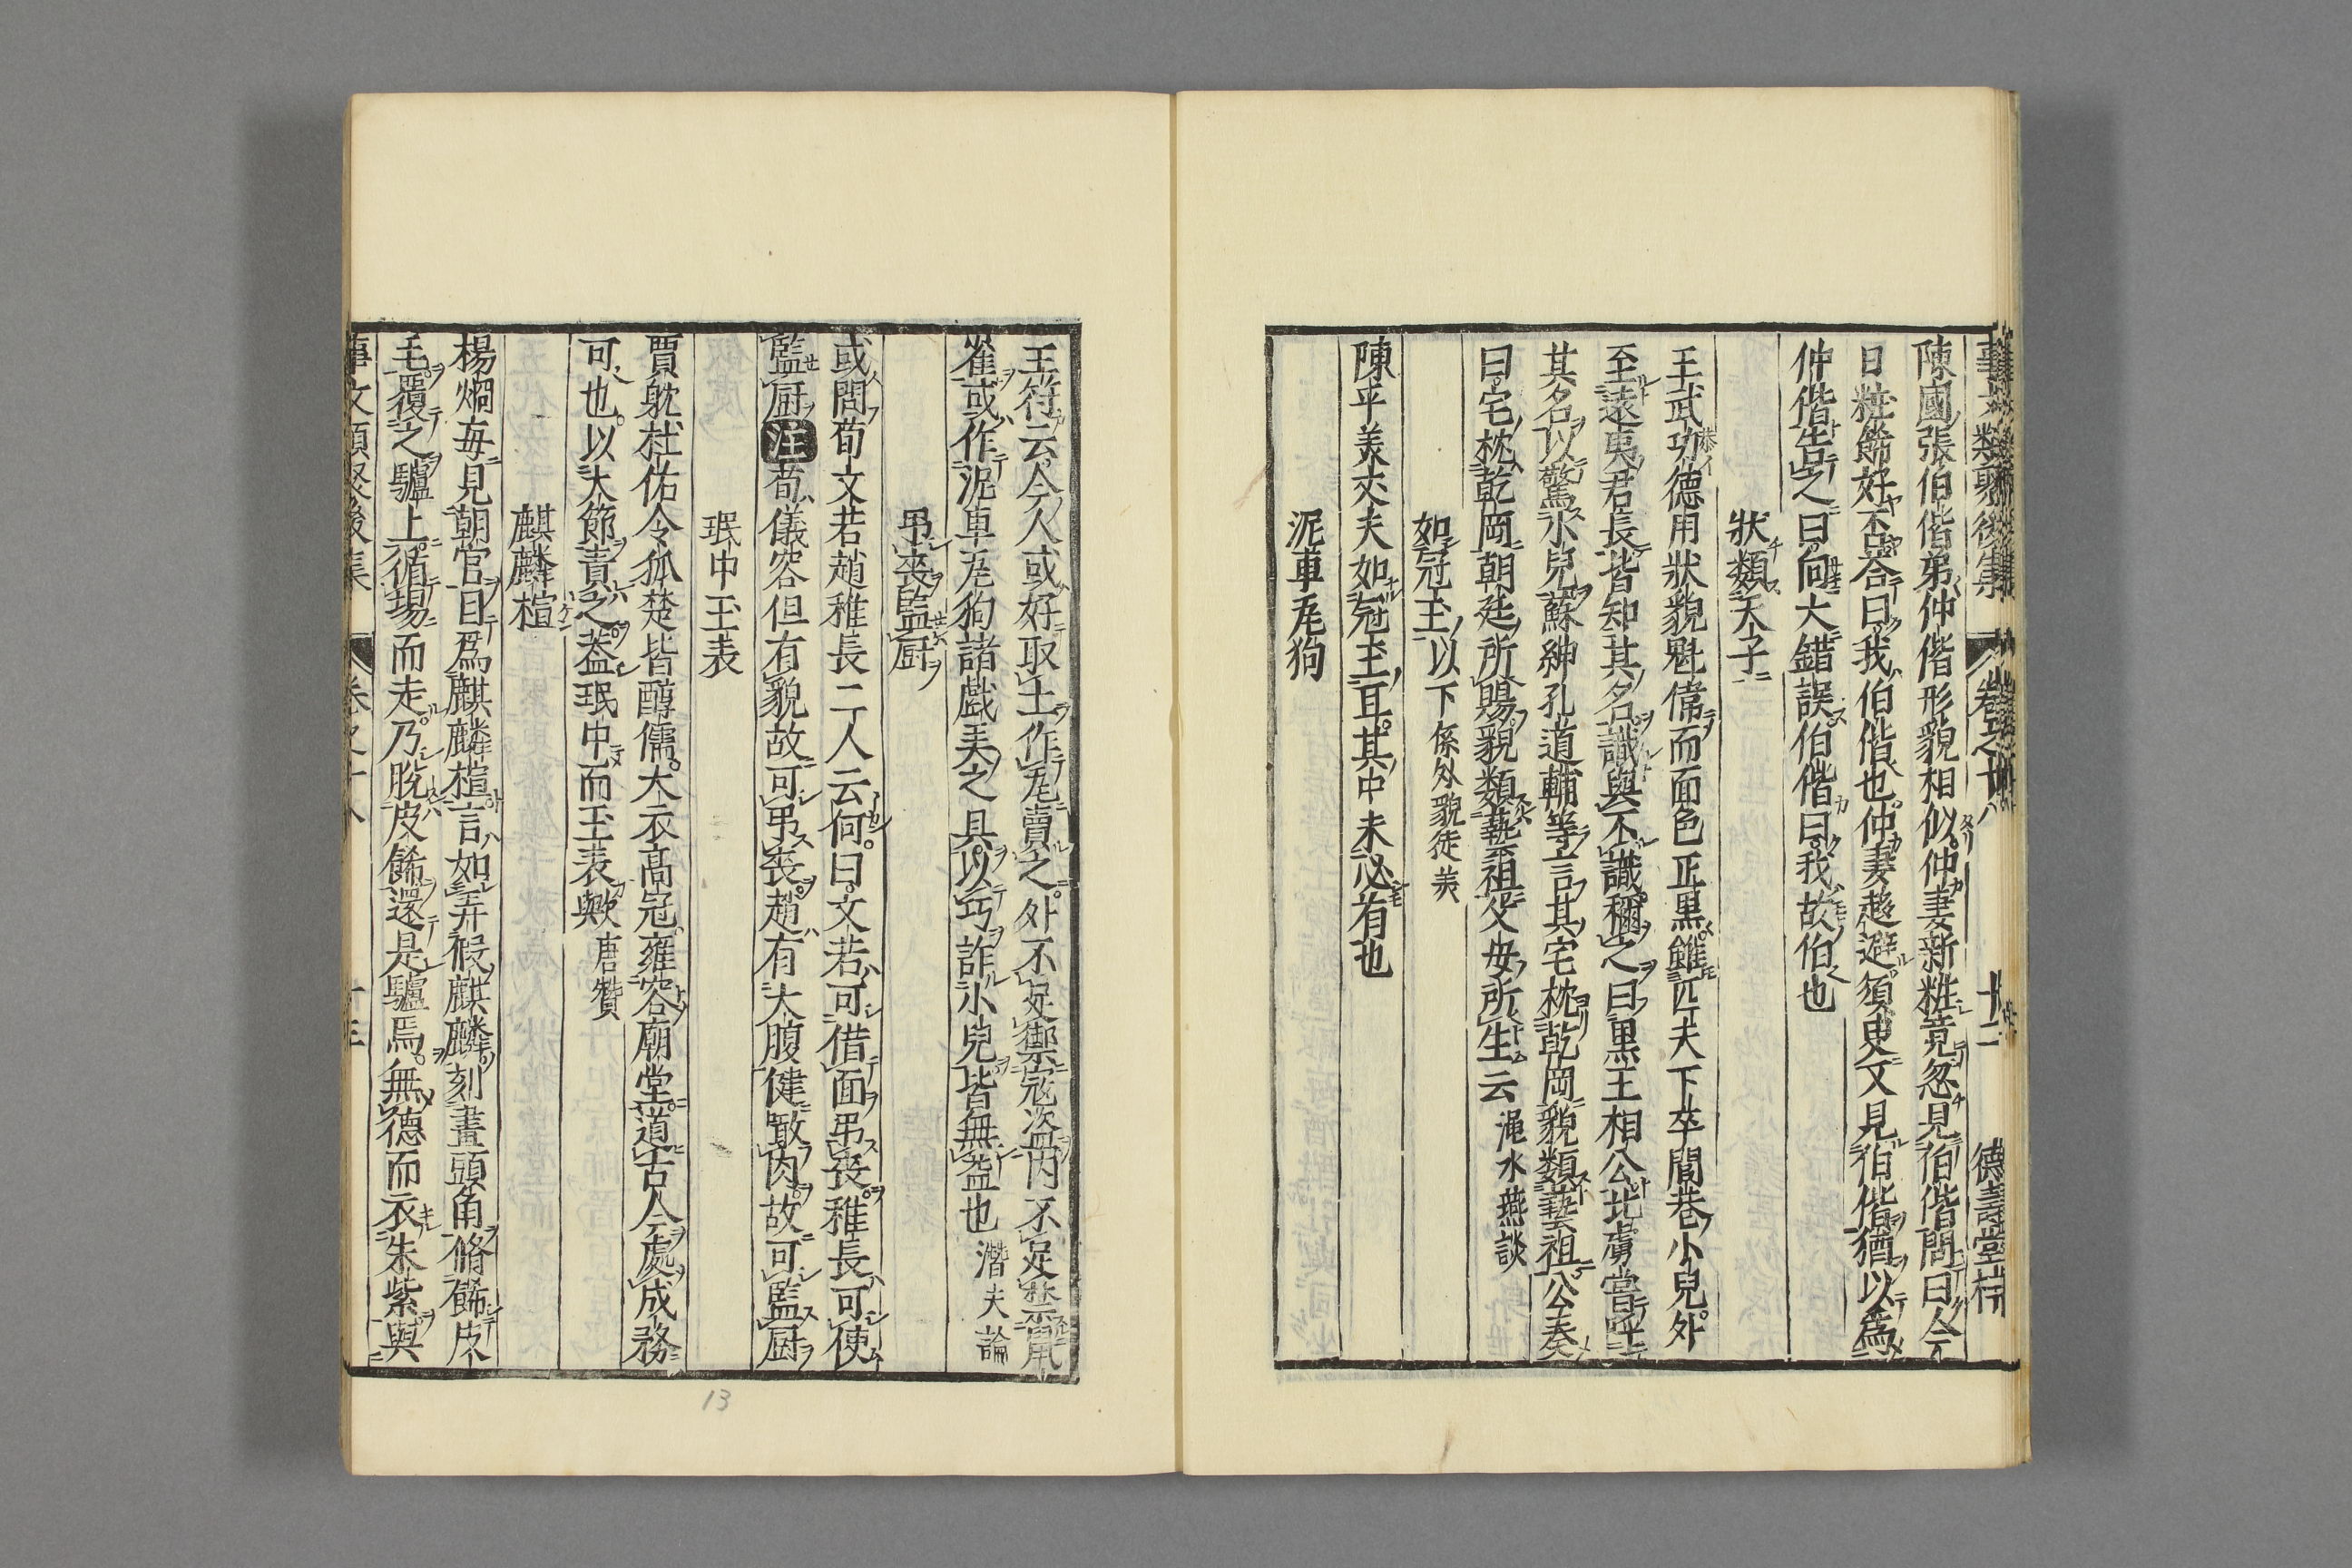 事文類聚後集 卷之十八 十二 德壽堂梓
陳國張伯偕弟仲偕形貌相似仲妻新粧竟忽見伯偕問曰今
日粧餙好不伯偕曰我伯偕也仲妻趍避須臾又見伯偕猶以爲
仲偕告之曰向大錯誤伯偕曰我故伯也
狀類天子
王武功德用狀貌魁偉而面色正黒雖匹夫下卒閭巷小兒外
至遠夷君長皆知其名識與不識稱之曰黒王相公北虜嘗呼
其名以驚小兒蘇紳孔道輔等言其宅枕乾岡貌類藝祖公奏
曰宅枕乾岡朝廷所賜貌類藝祖父母所生云 澠水燕談
如冠玉以下係外貌徒美
陳平美丈夫如冠玉耳其中未必有也
泥車瓦狗
王符云今人或好取土作瓦賣之外不足禦寇盗内不足禁鼠
雀或作泥車瓦狗諸戯美之具以巧詐小兒皆無益也 潛夫論
弔喪監厨
或問荀文若趙稚長二人云何曰文若可借面弔喪稚長可使
監厨注荀儀容但有貌故可弔喪趙有大腹健噉肉故可監厨
珉中玉表
賈躭杜佑令狐楚皆醇儒大衣髙冠雍容廟堂道古人處成務
可也以大節責之葢珉中而玉表歟 唐贊
麒麟楦
楊烱毎見朝官目爲麒麟楦言如弄假麒麟刻畫頭角脩餙皮
毛覆之驢上循塲而走乃脫皮餙還是驢焉無德而衣朱紫與
事文類聚後集 卷之十八 十三
13